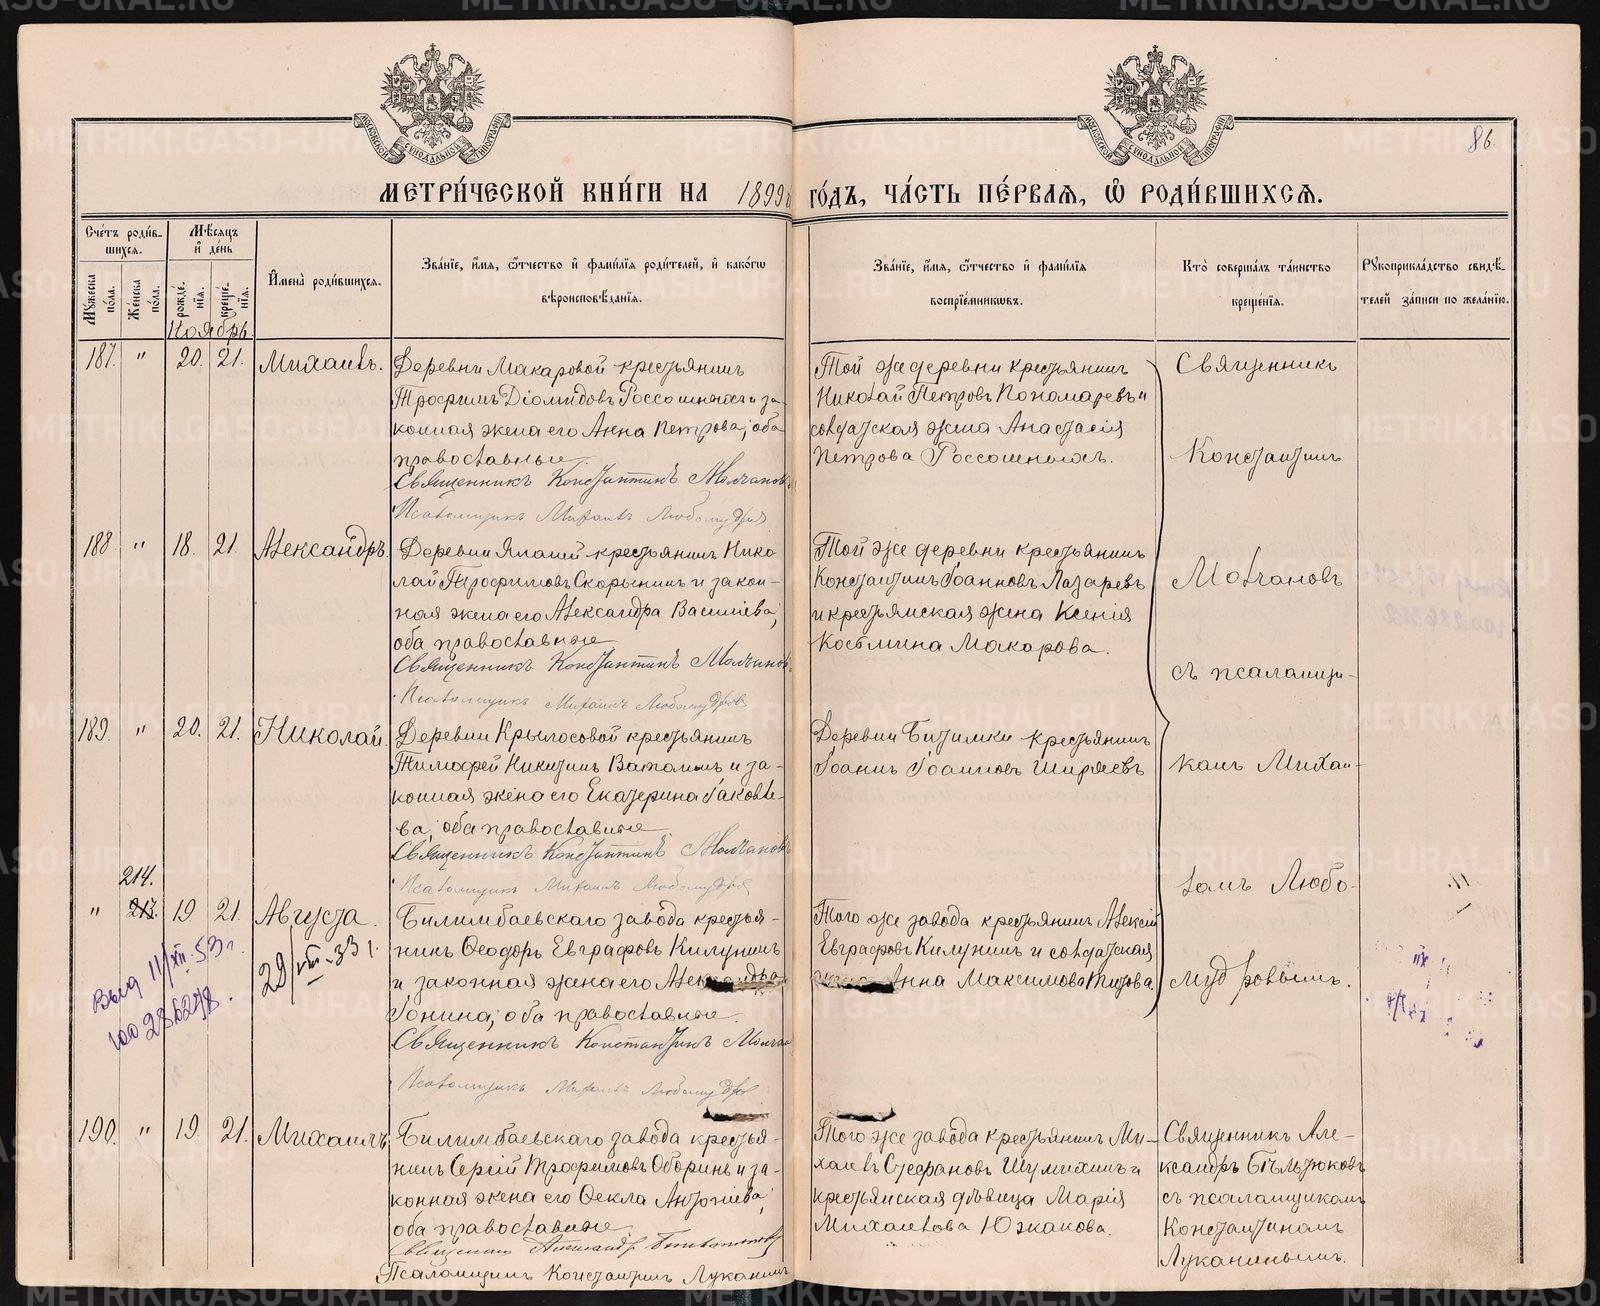 86.
МЕТРИ́ЧЕСКОЙ КНИ́ГИ НА 1899й ГО́ДЪ, ЧА́СТЬ ПЕ́РВАЯ, Ѽ РОДИ́ВШИХСЯ.
Сче́тъ роди́в-
шихся.
Мѣ́сяцъ
и҆ де́нь
Мꙋ́жеска
по́ла.
Же́нска
по́ла.
рожде́-
нїя.
креще́-
нїя.
И҆мена̀ роди́вшихся.
Зва́нїе, и҆́мя, ѻ҆́тчество и҆ фами́лїя роди́телей, и҆ како́гѡ
вѣроисповѣ́данїя.
Зва́нїе, и҆́мя, ѻ҆́тчество и҆ фами́лїя
воспрїе́мникѡвъ.
Кто̀ соверша́лъ та́инство
креще́нїя.
Рꙋкоприкла́дство свидѣ́-
телей за́писи по жела́нїю.
Ноябрь.
187. " 20. 21. Михаилъ.
Деревни Макаровой крестьянинъ
Трофимъ Діомидовъ Россошныхъ и за-
конная жена его Анна Петрова, оба
православные.
Священникъ Константинъ Молчановъ
Псаломщикъ Михаилъ Любомудровъ
Той же деревни крестьянинъ
Николай Петровъ Пономаревъ и
солдатская жена Анастасія
Петрова Россошныхъ.
Священникъ
Константинъ
188 " 18. 21. Александръ.
Деревни Ялашей крестьянинъ Нико-
лай Трофимовъ Скорынинъ и закон-
ная жена его Александра Васильева,
оба православные
Священникъ Константинъ Молчановъ
Псаломщикъ Михаилъ Любомудровъ
Той же деревни крестьянинъ
Константинъ Іоанновъ Лазаревъ
и крестьянская жена Ксенія
Косьмина Макарова.
Молчановъ
съ псаломщи-
189. " 20. 21. Николай.
Деревни Крылосовой крестьянинъ
Тимофей Никитинъ Ватолинъ и за-
конная жена его Екатерина Іаковле-
ва, оба православные
Священникъ Константинъ Молчановъ
Псаломщикъ Михаилъ Любомудровъ
Деревни Битимки крестьянинъ
Іоаннъ Іоанновъ Ширяевъ
комъ Михаи-
ломъ Любо-
мудровымъ.
214.
" 213. 19 21. Августа.
29/VIII-33 г.
Выд 11/XII-53 г.
Билимбаевскаго завода крестья-
нинъ Ѳеодоръ Евграфовъ Килунинъ
и законная жена его Александра
Іонина, оба православные.
Священникъ Константинъ Молчановъ
Псаломщикъ Михаилъ Любомудровъ
Того же завода крестьянинъ Алексій
Евграфовъ Килунинъ и солдатская
жена Анна Максимова Титова
190. " 19. 21. Михаилъ
Билимбаевскаго завода крестья-
нинъ Сергій Трофимовъ Оборинъ и за-
конная жена его Ѳекла Антоніева,
оба православные
Псаломщикъ Константинъ Луканинъ
Того же завода крестьянинъ Ми-
хаилъ Стефановъ Шумихинъ и
крестьянская дѣвица Марія
Михаилова Южакова.
Священникъ Але-
ксандръ Бѣльтюковъ
съ псаломщикомъ
Константиномъ
Луканинымъ.